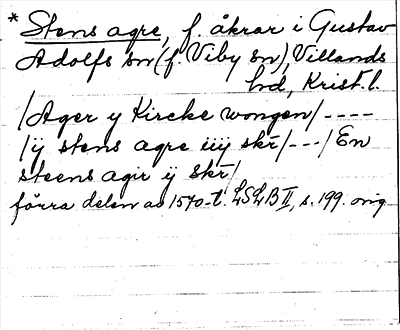 * Stens agre, f. åkrar i Gustav
Adolfs sn (f. Viby sn), Villands
hd, Krist. l.
/Ager y Kircke wongen/ ----
/ÿ stens agre iiÿ skr/---/En
steens agir ÿ skr/
förra delen av 1570-t. LSLB II, s. 199. orig